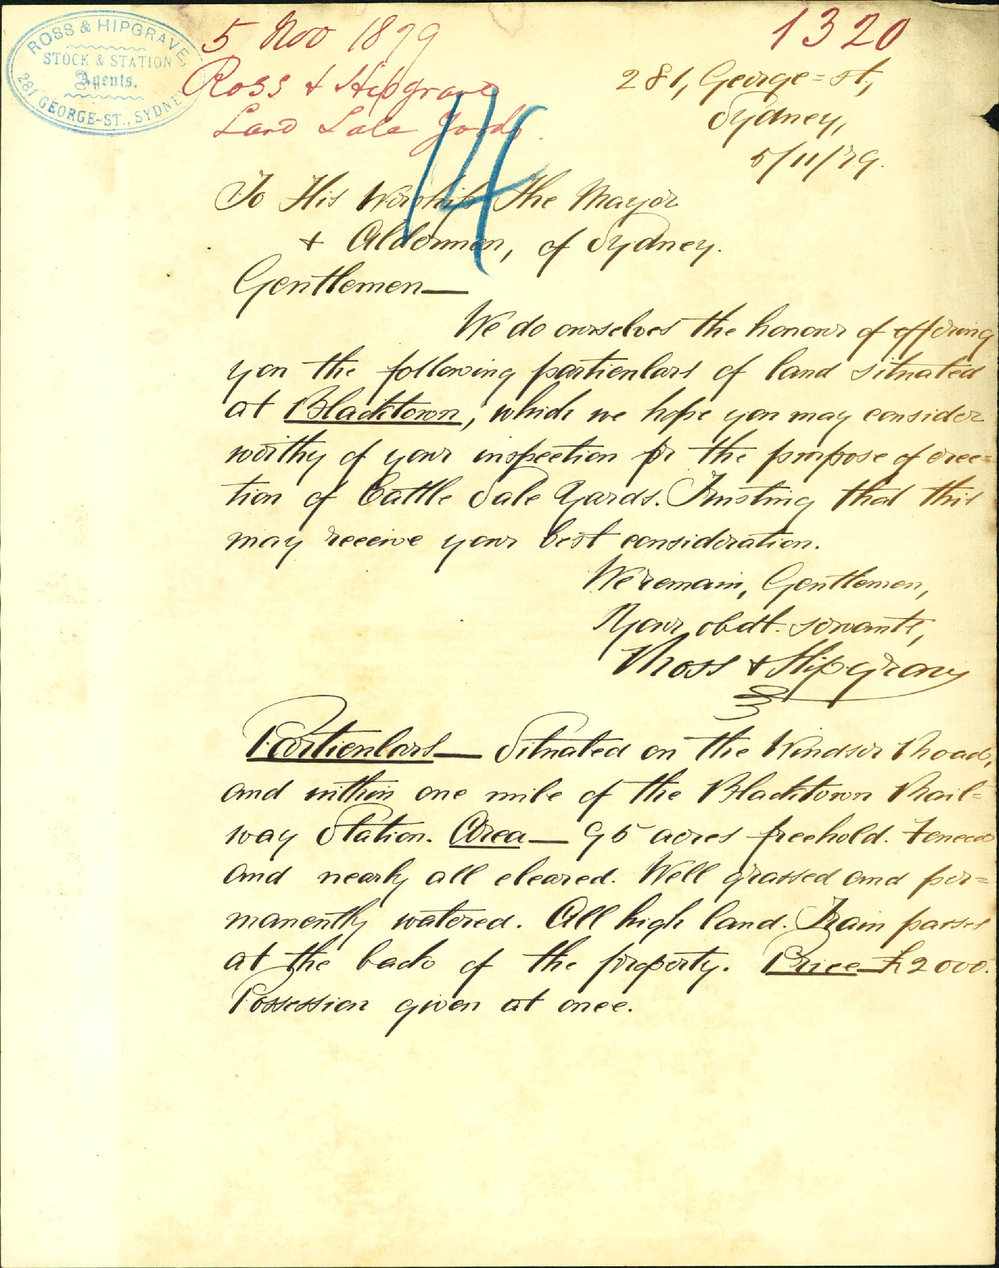 ROSS & HIPGRAVE
STOCK & STATION
Agents.
281 GEORGE-ST., SYDNEY
5 Nov 1879
1320
Ross & Hipgrave
Land Sale Yards.
14
281, George=st,
Sydney,
5/11/79.
To His Worship the Mayor
& Aldermen, of Sydney.
Gentlemen—
We do ourselves the honour of offering
you the following particulars of land situated
at Blacktown, which we hope you may consider
worthy of your inspection for the purpose of erec=
tion of Cattle Sale Yards. Trusting that this
may receive your best consideration.
We remain, Gentlemen,
Your obdt. servants,
Ross & Hipgrave
Particulars— Situated on the Windsor Road,
and within one mile of the Blacktown Rail=
way Station. Area— 95 acres freehold. Fenced
and nearly all cleared. Well grassed and per=
manently watered. All high land. Train passes
at the back of the property. Price— £2000.
Possession given at once.